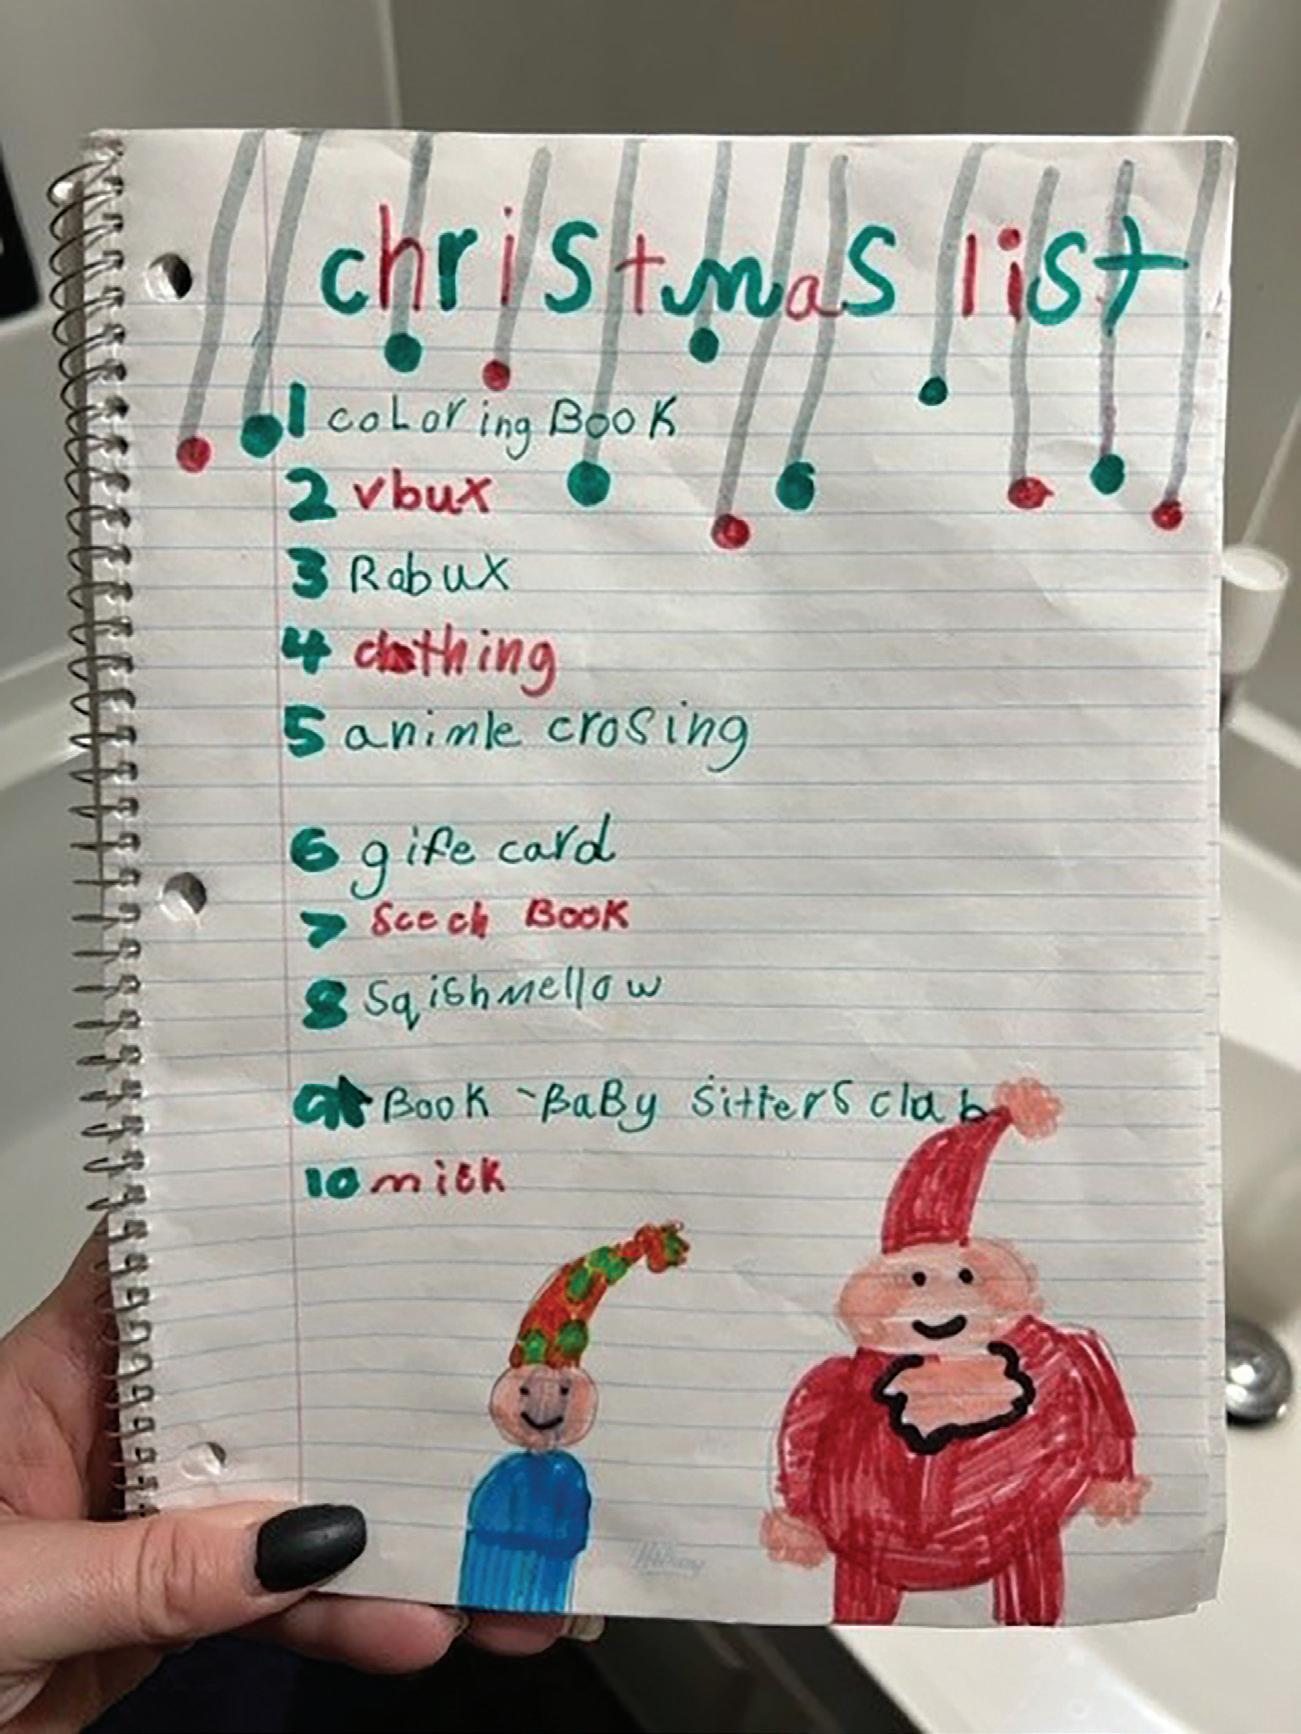 christmas list
1 coLoring Book
2 vbux
3 Robux
4 clothing
5 animle crosing
6 gife card
7 Scech Book
8 Sqishmellow
9 Book - BaBy sitters club
10 milk